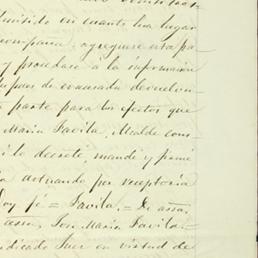 admisido en cuanto ha lugar
acompaña, agreguese esta pa
y procedase á la informacion
espues de evacuada devuelva
a parte para los efectos que
Maria Favila, Alcalde cons
i lo decretó, mandó y firmó
actuando por receptoria
Doy fé = Favila. = De assa.
assa, Jose Maria Favila.
indicado Juez en virtud de